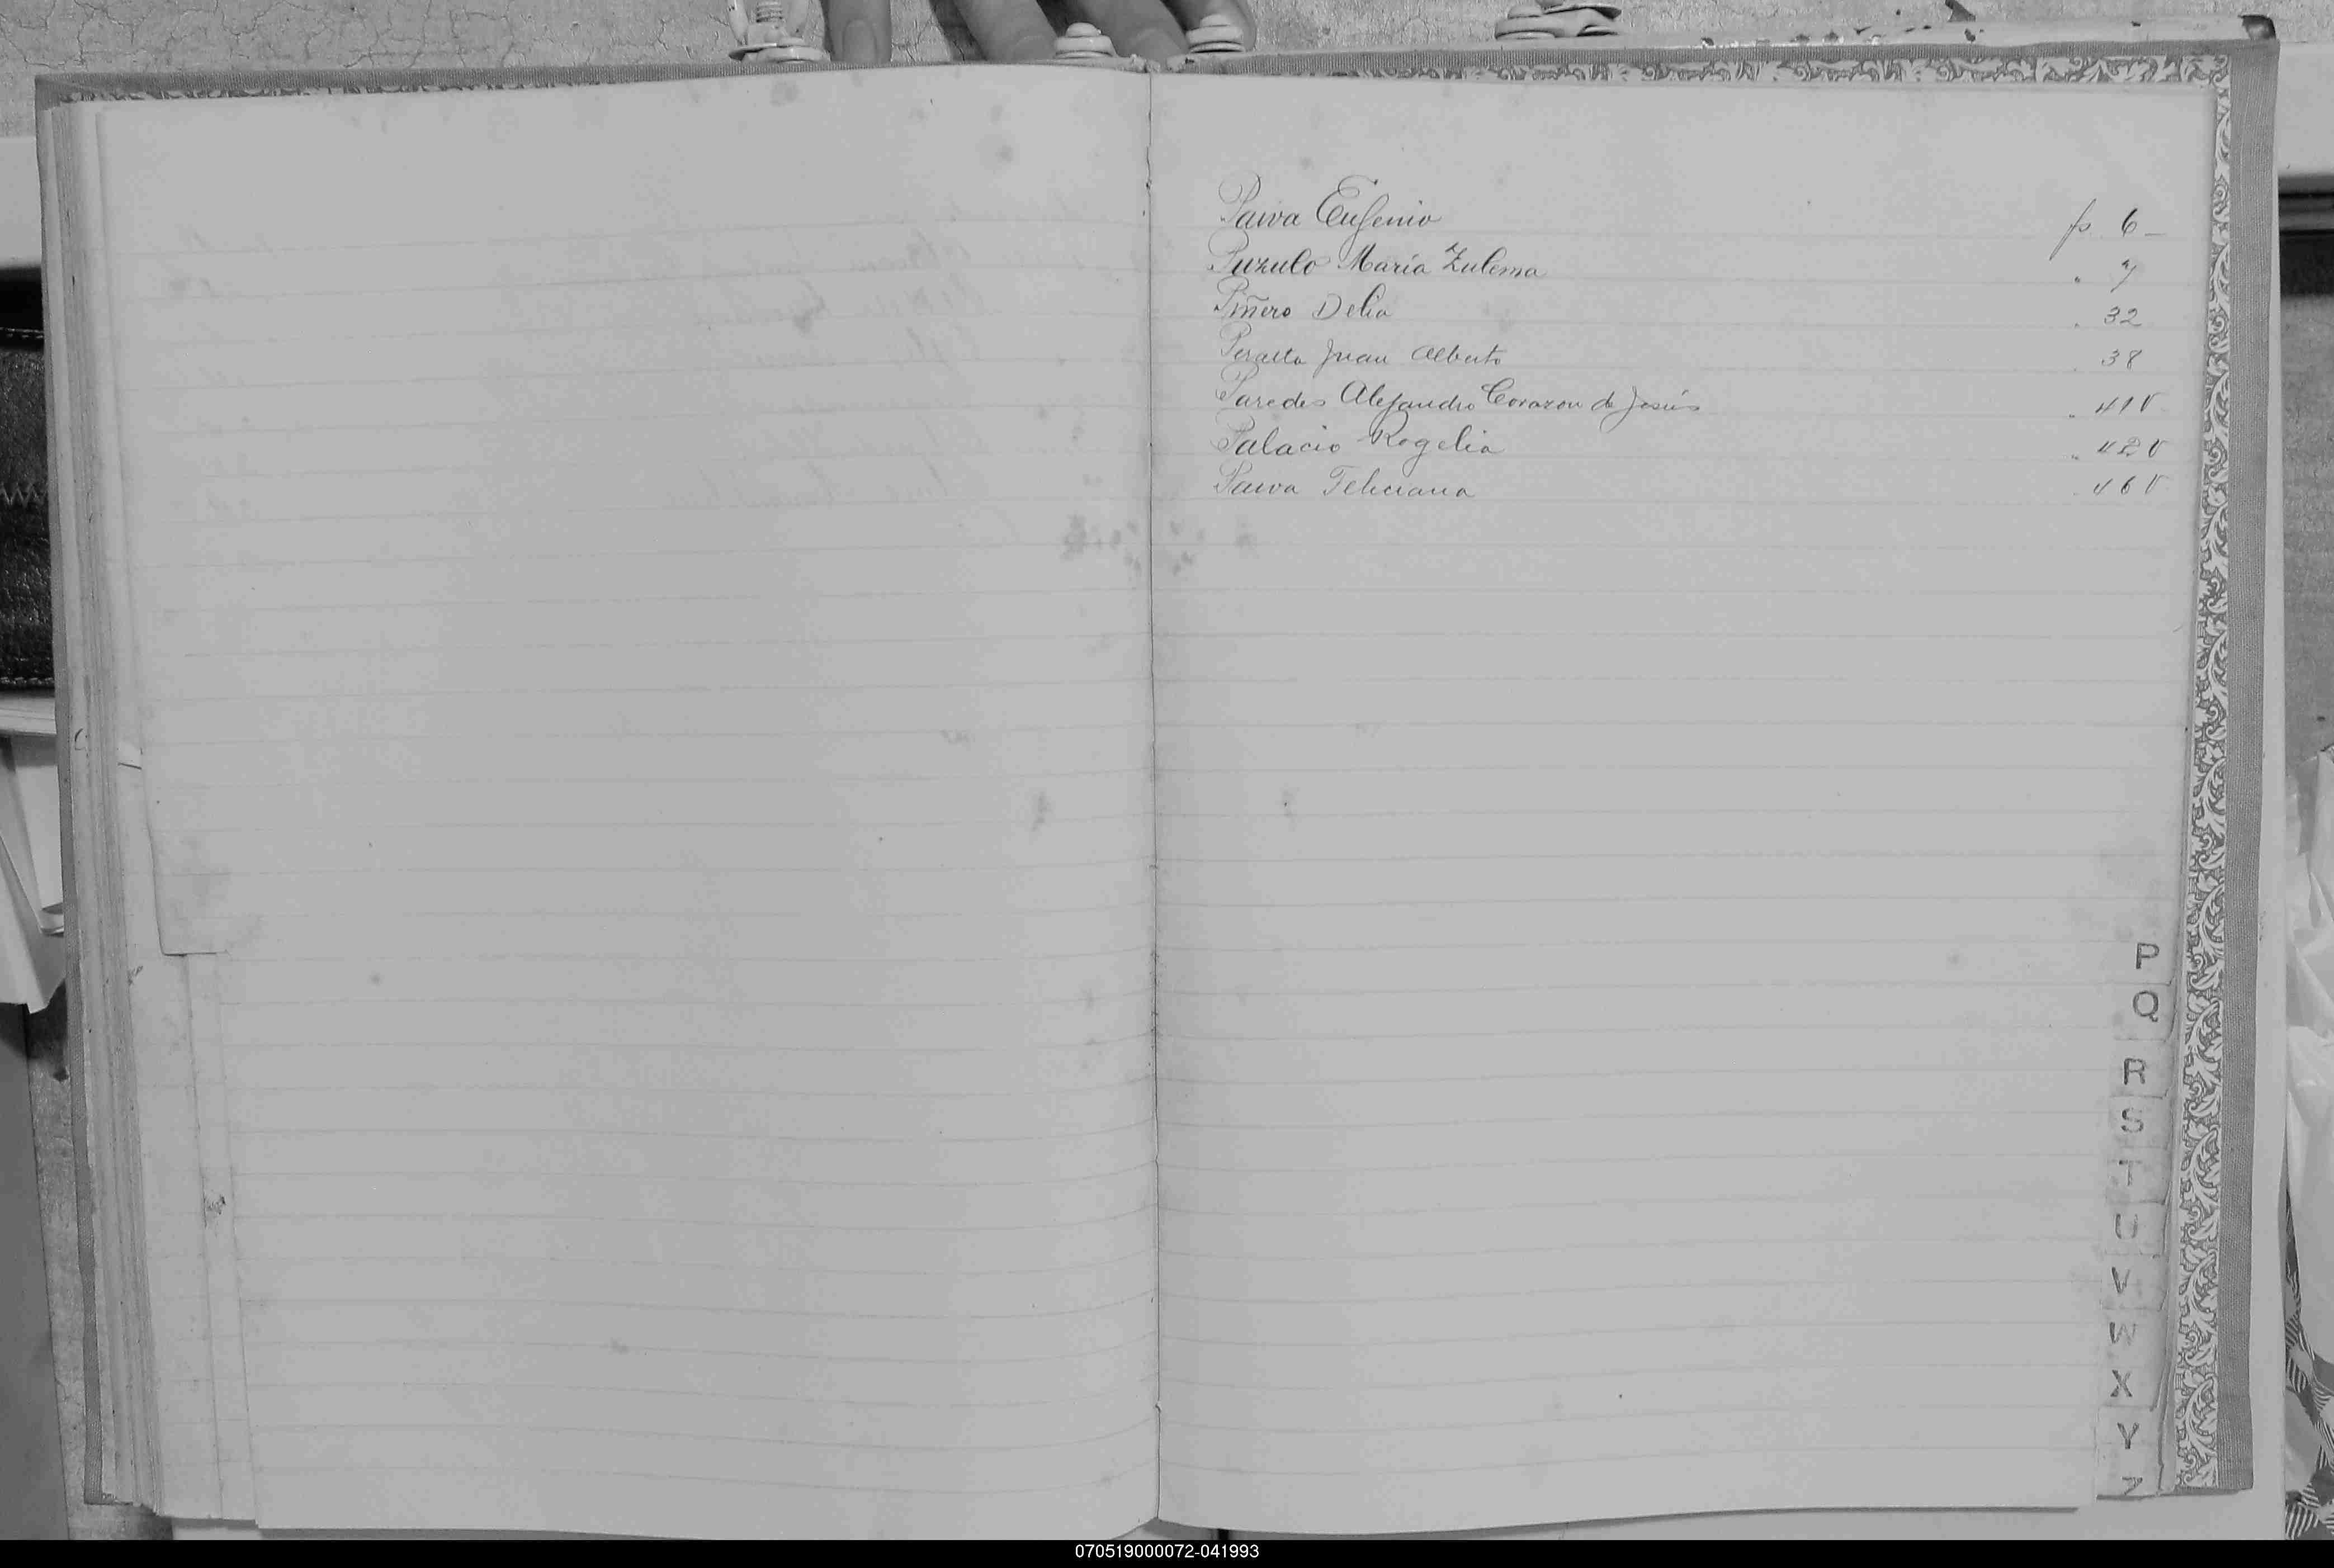 Paiva Eugenio fs 6 -
Puzulo María Zulema " 7
Piñero Delia " 32
Peralta Juan Alberto " 38
Paredes Alejandro Corazon de Jesús " 41 V
Palacio Rogelia " 42 V
Paiva Feliciana " 46 V
P
Q
R
S
T
U
V
W
X
Y
Z
070519000072-041993